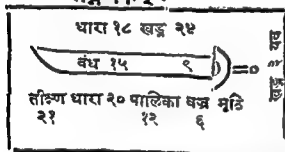 धारा १८ खङ्ग २४
बंध १५ ९
तीक्ष्ण धारा २० पालिका वज्र मूठि
२१ १२ ६